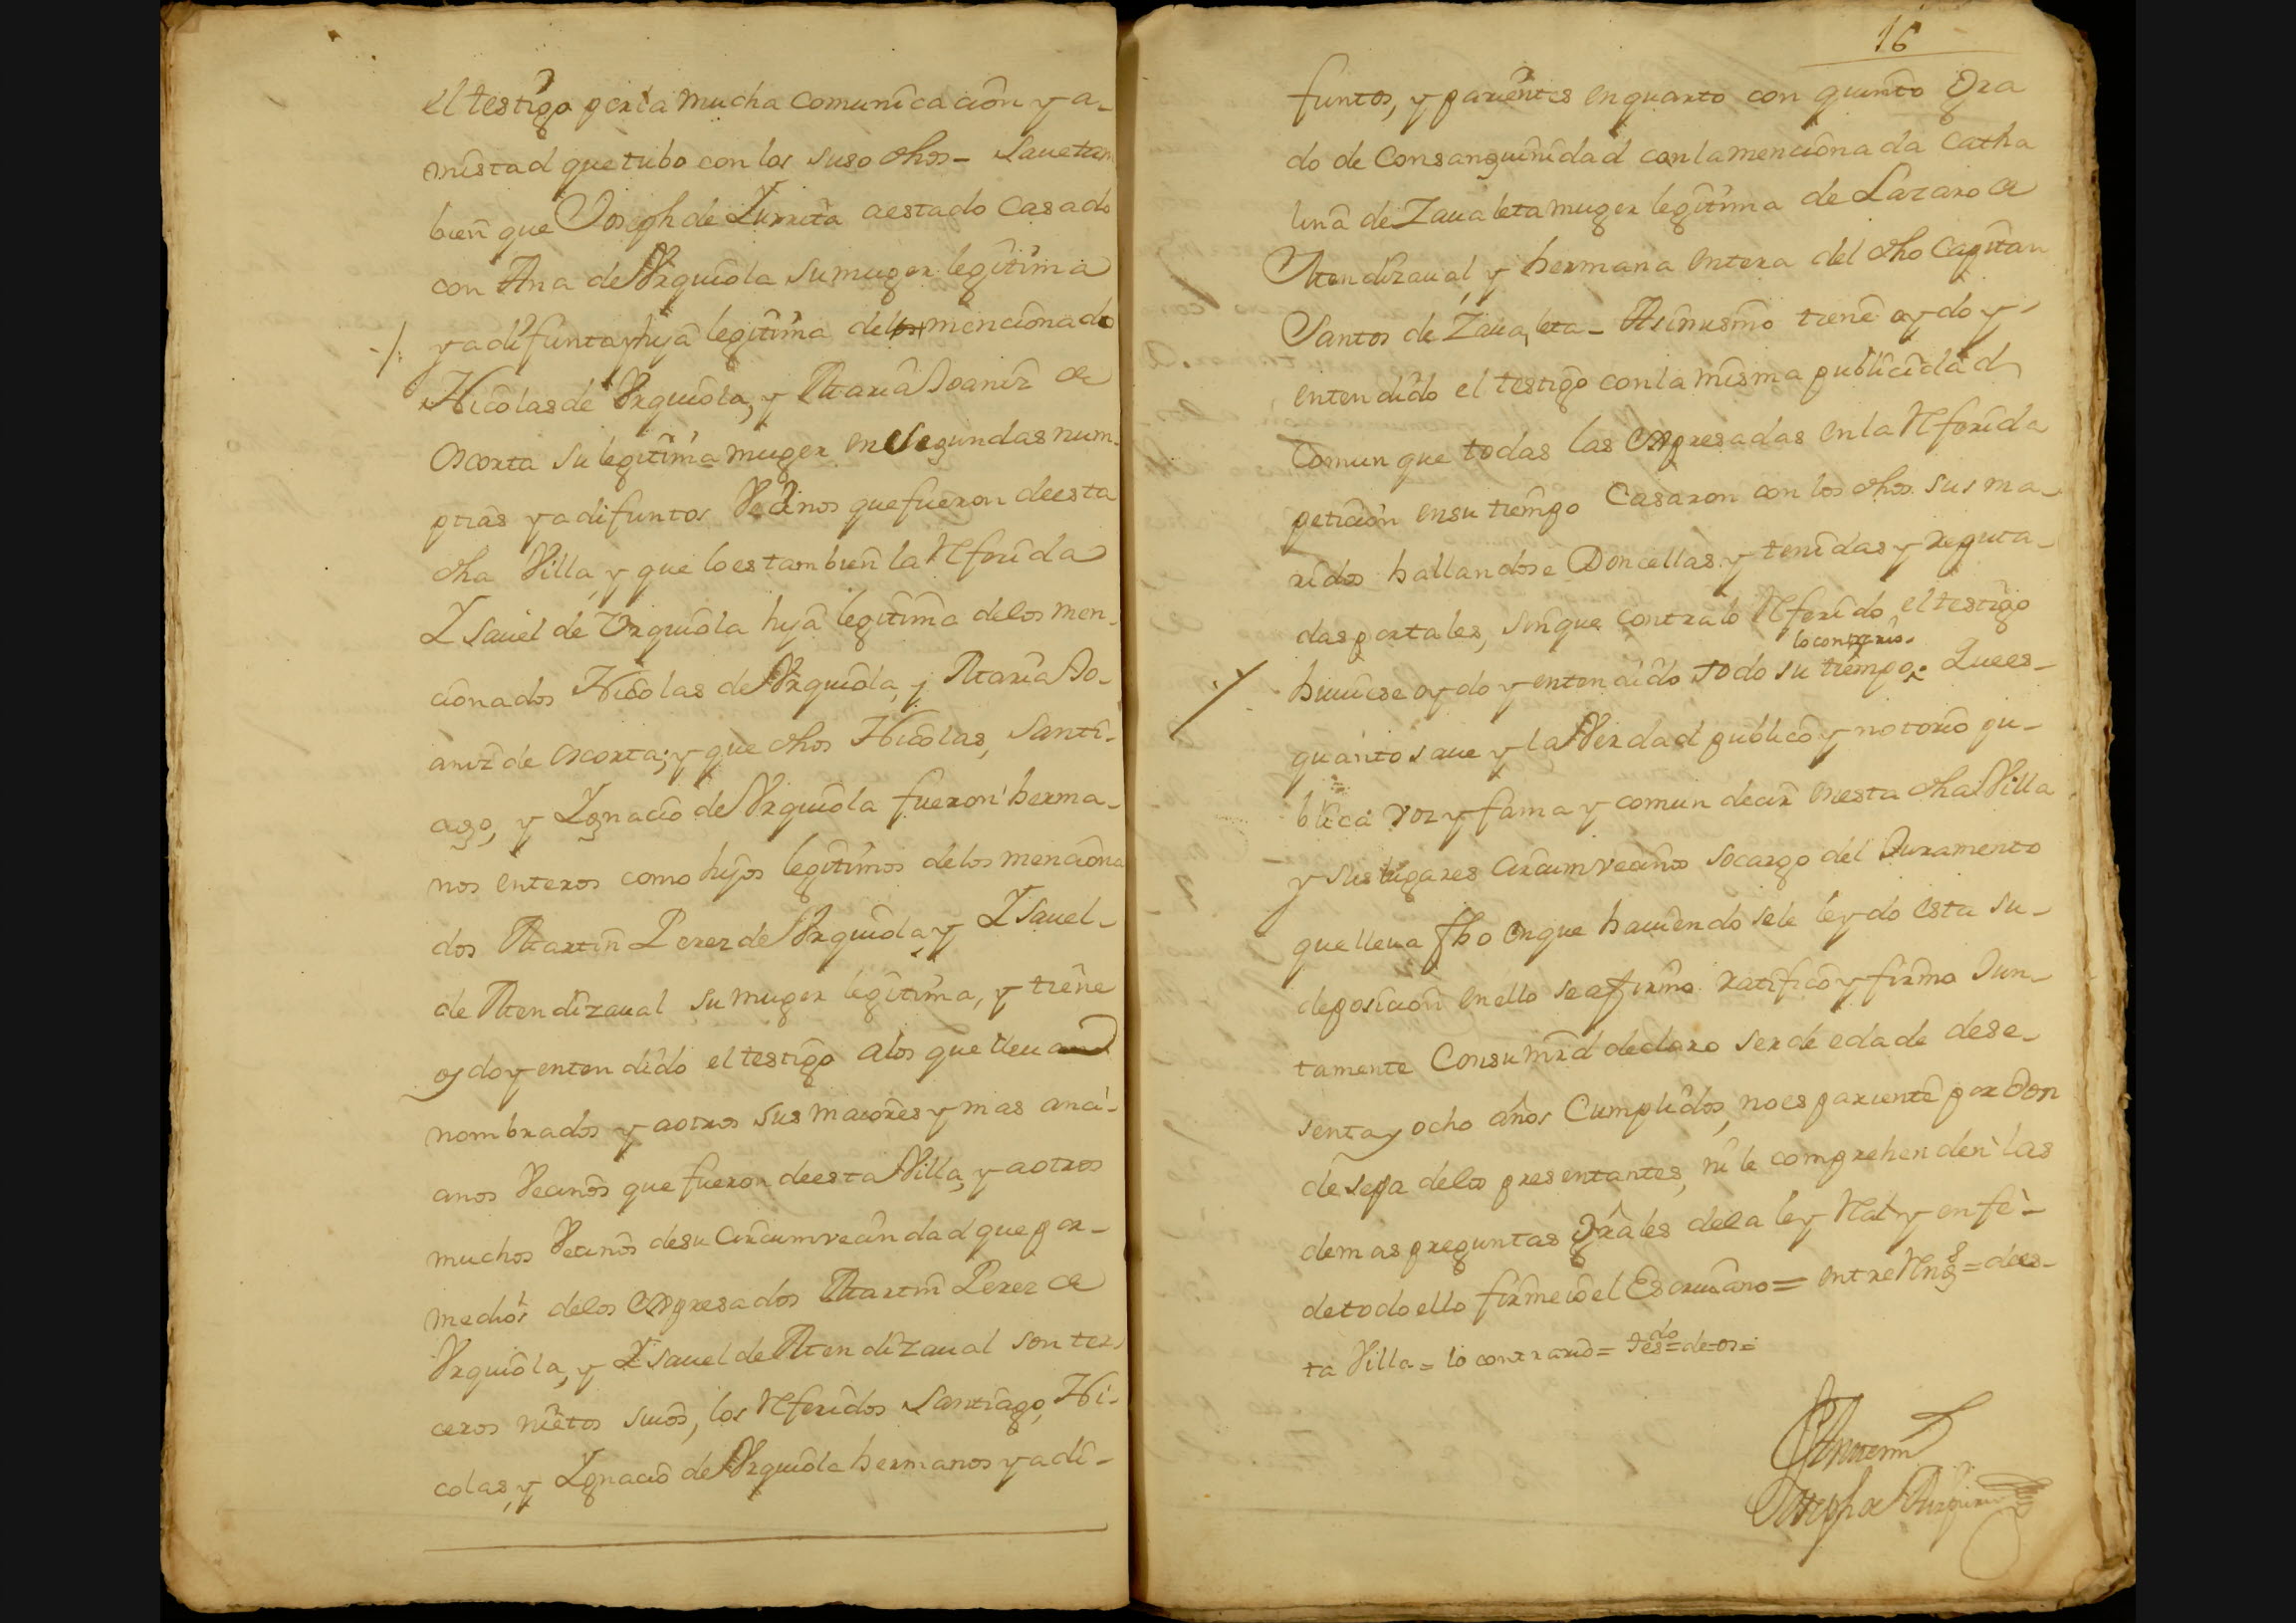 el testigo por la mucha comunicación y a-
mistad que tubo con los suso dhos - Saue tam
bien que Joseph de Zurreta a estado Casado
con Ana de Vrquiola su muger legítima
ya difunta y hija legítima de los mencionado
Nicolas de Vrquiola, y Maria Joaniz de
Ascorta su legítima muger en Segundas num-
ptias ya difuntos Vecinos que fueron de esta
dha Villa, y que lo es tambien la Referida
Isauel de Vrquiola hija legítima de los men-
cionados Nicolas de Vrquiola, y Maria Jo-
aniz de Ascorta; y que dhos Nicolas, Santi-
ago, y Ignacio de Vrquiola fueron herma-
nos enteros como hijos legítimos de los menciona
dos Martin Perez de Vrquiola, y Isauel-
de Mendizaual su muger legítima, y tiene
oydo y entendido el testigo a los que lleua
nombrados y a otros sus maiores y mas anci-
anos Vecinos que fueron de esta Villa, y a otros
muchos Vecinos de su Circumvecindad que por-
medios de los expresados Martin Perez de
Vrquiola, y Isauel de Mendizaual son ter-
ceros nietos suios, los Referidos Santiago, Ni-
colas, y Ignacio de Vrquiola hermanos ya di-
16
funtos, y parientes en quarto con quinto Gra
do de Consanguinidad con la mencionada Catha
lina de Zaualeta muger legítima de Lazaro de
Mendizaual, y hermana entera del dho Capitan
Santos de Zaualeta - Asimismo tiene oydo y
entendido el testigo con la misma publicidad
Comun que todas las Expresadas en la Referida
petición en su tiempo Casaron con los dhos sus ma-
ridos hallandose Doncellas y tenidas y reputa-
das por tales, sin que contra lo Referido, el testigo
lo contrario.
huuiese oydo y entendido todo su tiempo. Que es-
quanto saue y la Verdad publico y notorio pu-
blica voz y fama y comun decir en esta dha Villa
y sus lugares Circumvecinos socargo del Juramento
que lleua fho en que hauiendo sele leydo esta su-
deposición en ello se affirmo. ratifico y firmo Jun-
tamente Con su mrd declaro ser de edad de se-
senta y ocho años Cumplidos, no es pariente por Don
de sepa de los presentantes, ni le comprehenden las
demas preguntas Grales de la ley Real y en fe-
de todo ello firme io el Escriuano = entre Rns = de es-
ta Villa = lo contrario = tesdo = de = os =
Joseph de